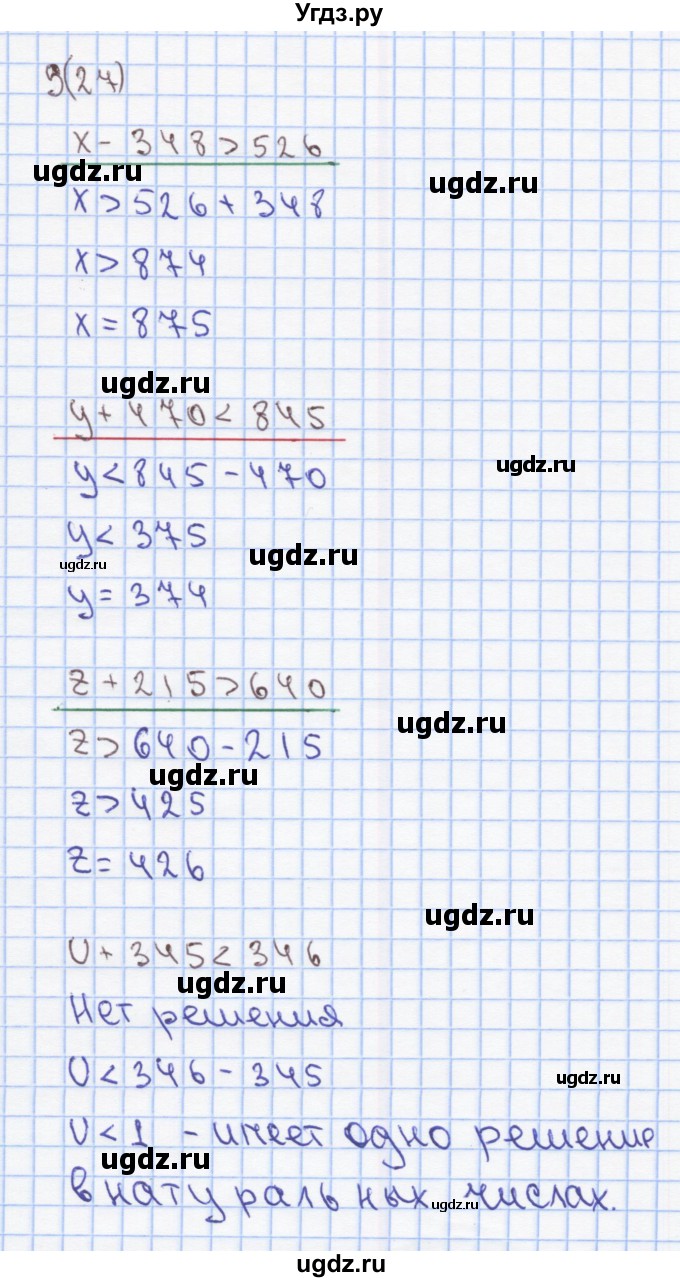 Угдз.ру
9(27)
x - 348 > 526
ugdz.ru
ugdz.ru
x > 526 + 348
x > 874
x = 875
ugdz.ru
y + 470 < 845
ugdz.ru
y < 845 - 470
y < 375
ugdz.ru
ugdz.ru
y = 374
z + 215 > 640
ugdz.ru
z > 640 - 215
ugdz.ru
z > 425
z = 426
ugdz.ru
U + 345 < 346
ugdz.ru
Нет решения
U < 346 - 345
ugdz.ru
U < 1 - имеет одно решение
ugdz.ru
в натуральных числах.
ugdz.ru
ugdz.ru